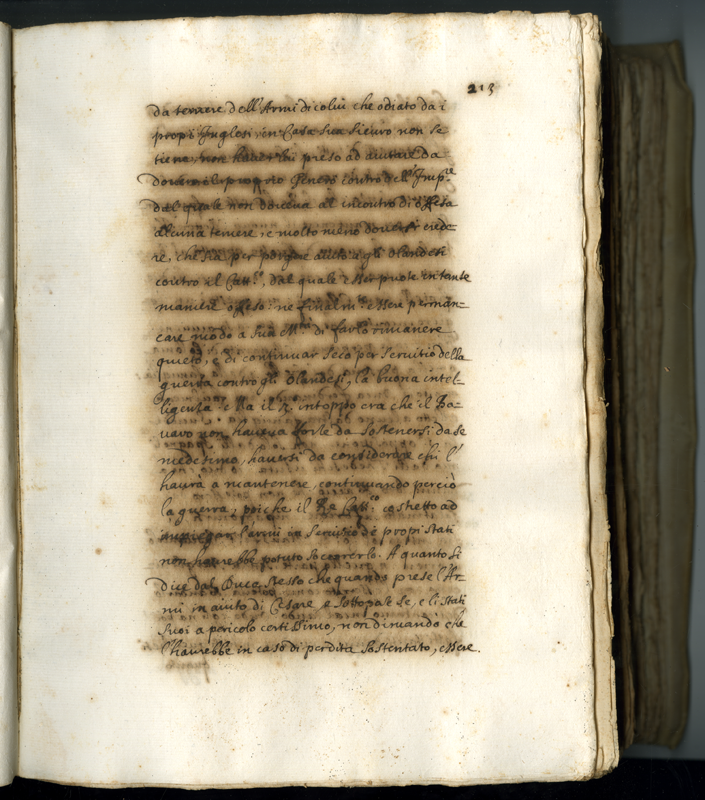 213
da temere dell'Armi di colui che odiato da i
propi Inglesi, in Casa sua sicuro non se
tiene, non haver mai preso ad aiutare da
dovero il proprio Genero contro dell'Imp.re
dal quale non doveva al incontro di offesa
alcuna temere, e molto meno doversi crede-
re, che sia per porgere aiuto à gli Olandesi
contro il Catt.co, dal quale esser puote in tante
maniere offeso: ne finalm.te essere per man-
care modo a sua M.tà di farlo rimanere
quieto, e di continuar seco per servitio della
guerra contro gli Olandesi, la buona intel-
ligenza e ha il intoppo era che il Ba-
varo non haveva forze da sostenersi da se
medesimo, haversi da considerare chi l'
haurà a mantenere, continuando perciò
la guerra, poiche il Re Catt.co costretto ad
impiegar l'armi in servitio de propi stati
non haurebbe potuto socorrerlo. A quanto si
dice dal Duca stesso che quando prese l'Ar-
mi in aiuto di Cesare e sottopose se, e li stati
suoi a pericolo certissimo, non dimando chè
l'haurebbe in caso di perdita sostentato, essere.